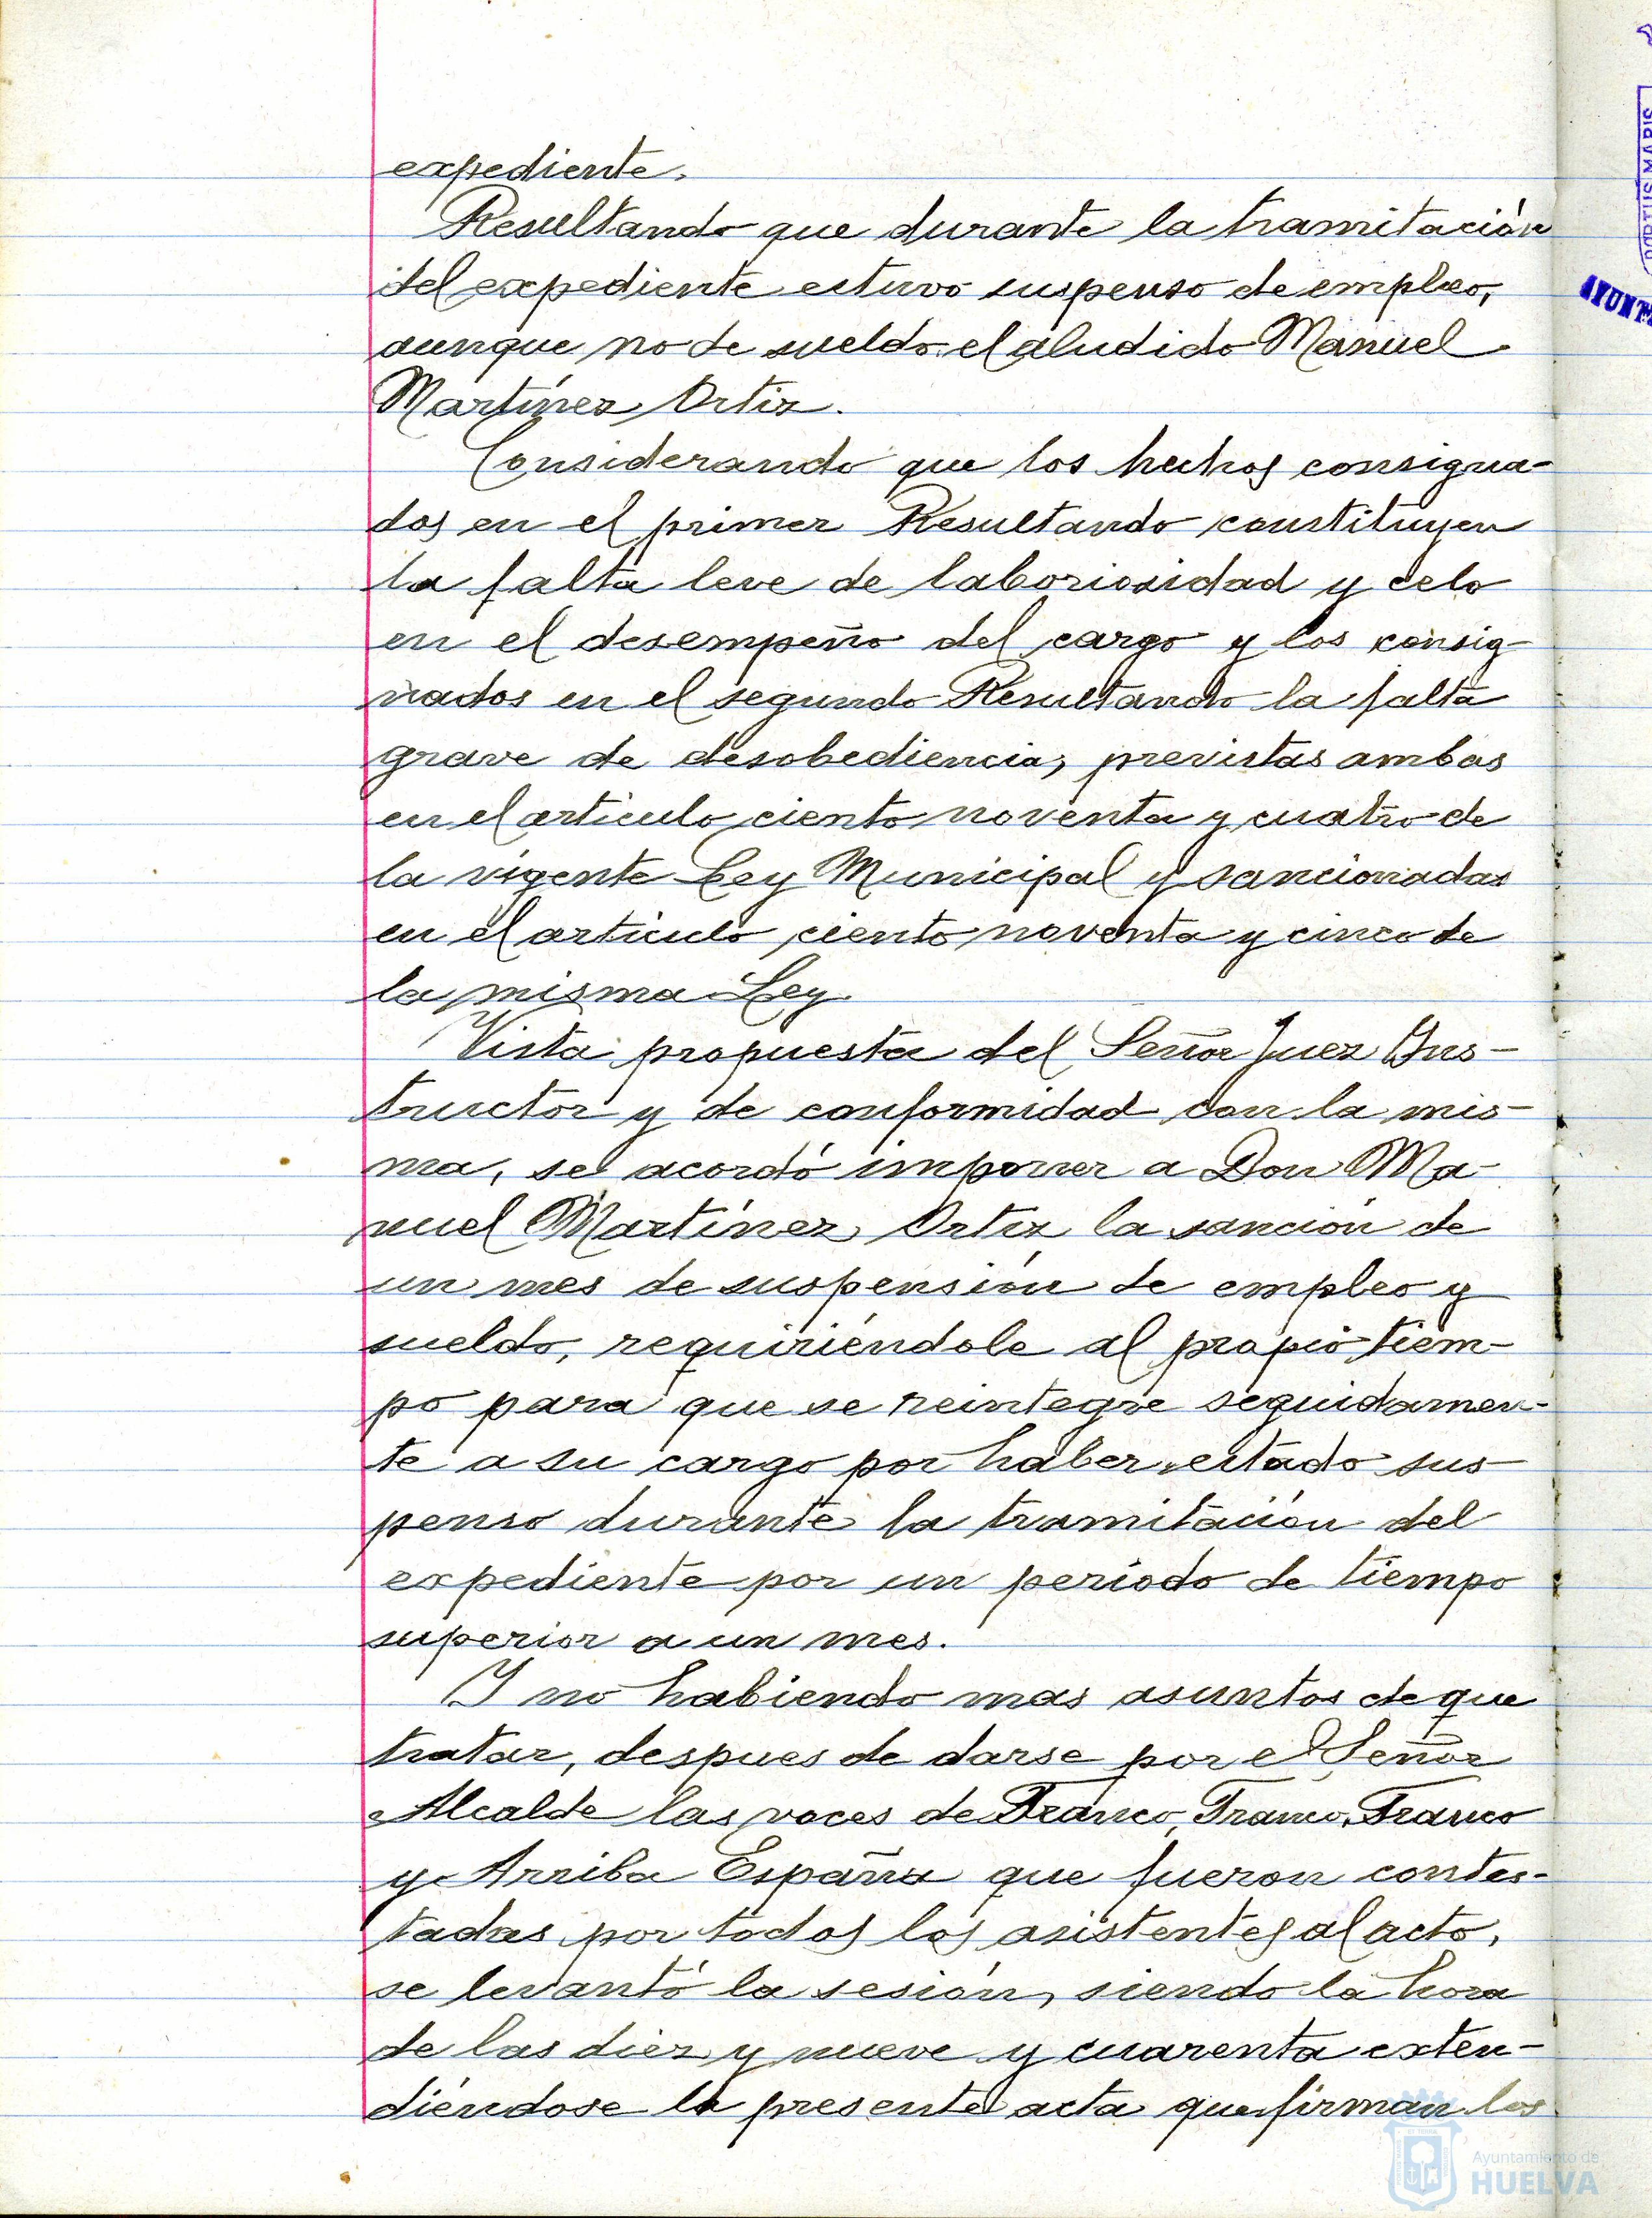 expediente.
Resultando que durante la tramitación
del expediente estuvo suspenso de empleo,
aunque no de sueldo el aludido Manuel
Martínez Ortiz.
Considerando que los hechos consigna-
dos en el primer Resultando constituyen
la falta leve de laboriosidad y celo
en el desempeño del cargo y los consig-
nados en el segundo Resultando la falta
grave de desobediencia, previstas ambas
en el artículo ciento noventa y cuatro de
la vigente Ley Municipal y sancionadas
en el artículo ciento noventa y cinco de
la misma Ley.
Vista propuesta del Señor Juez Ins-
tructor y de conformidad con la mis-
ma, se acordó imponer a Don Ma-
nuel Martínez Ortiz la sanción de
un mes de suspensión de empleo y
sueldo, requiriéndole al propio tiem-
po para que se reintegre seguidamen-
te a su cargo por haber estado sus-
penso durante la tramitación del
expediente por un período de tiempo
superior a un mes.
Y no habiendo mas asuntos de que
tratar, despues de darse por el Señor
Alcalde las voces de Franco, Franco, Franco
y Arriba España que fueron contes-
tadas por todos los asistentes al acto,
se levantó la sesión, siendo la hora
de las diez y nueve y cuarenta exten-
diéndose la presente acta que firman los
PORTUS MARIS
AYUNT
Ayuntamiento de
HUELVA